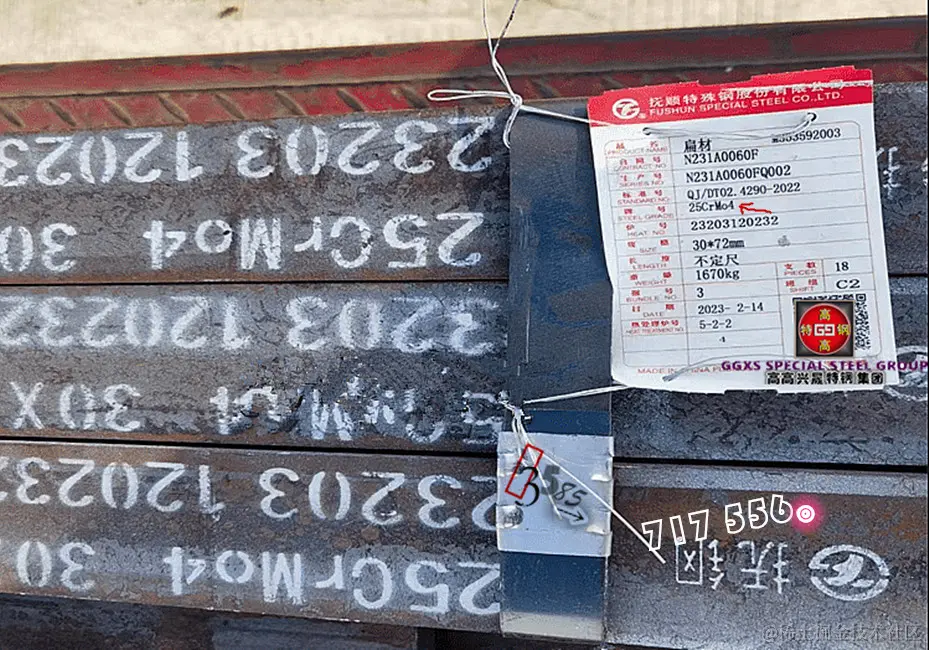 23203 12023
25CrMo4 30
23203 12023
30X
23203 120232
25CrMo4 30
抚顺特殊钢股份有限公司
FUSHUN SPECIAL STEEL CO.,LTD.
品名 扁材
PRODUCT NAME
合同号 N231A0060F
CONTRACT NO
生产号 N231A0060FQ002
SERIES NO
标准号 QJ/DT02.4290-2022
STANDARD NO
牌号 25CrMo4
STEEL GRADE
炉号 23203120232
HEAT NO
规格 30*72mm
SIZE
长度 不定尺
LENGTH
重量 1670kg
WEIGHT
支数 18
PIECES
班组 C2
SHIFT
捆号 3
BUNDLE NO
日期 2023- 2-14
DATE
热管理炉号 5-2-2
HEAT TREATMENT NO
4
MADE IN CHINA
高
特GG钢
高
GGXS SPECIAL STEEL GROUP
高高兴晟特钢集团
3
585
717 556
抚钢
@稀土掘金技术社区